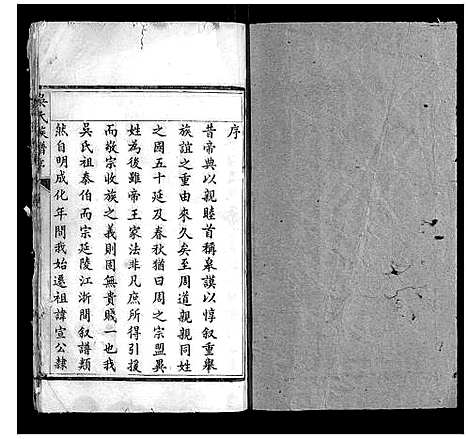 序
昔帝典以親睦首稱皋謨以惇叙重舉
族誼之重由來久矣至周道親親同姓
之國五十延及春秋猶曰周之宗盟異
姓為後雖帝王家法非凡庶所得引援
而敬宗收族之義則固無貴賤一也我
吳氏祖泰伯而宗延陵江浙間叙譜類
然自明成化年間我始遷祖諱宣公隸
吳氏族譜